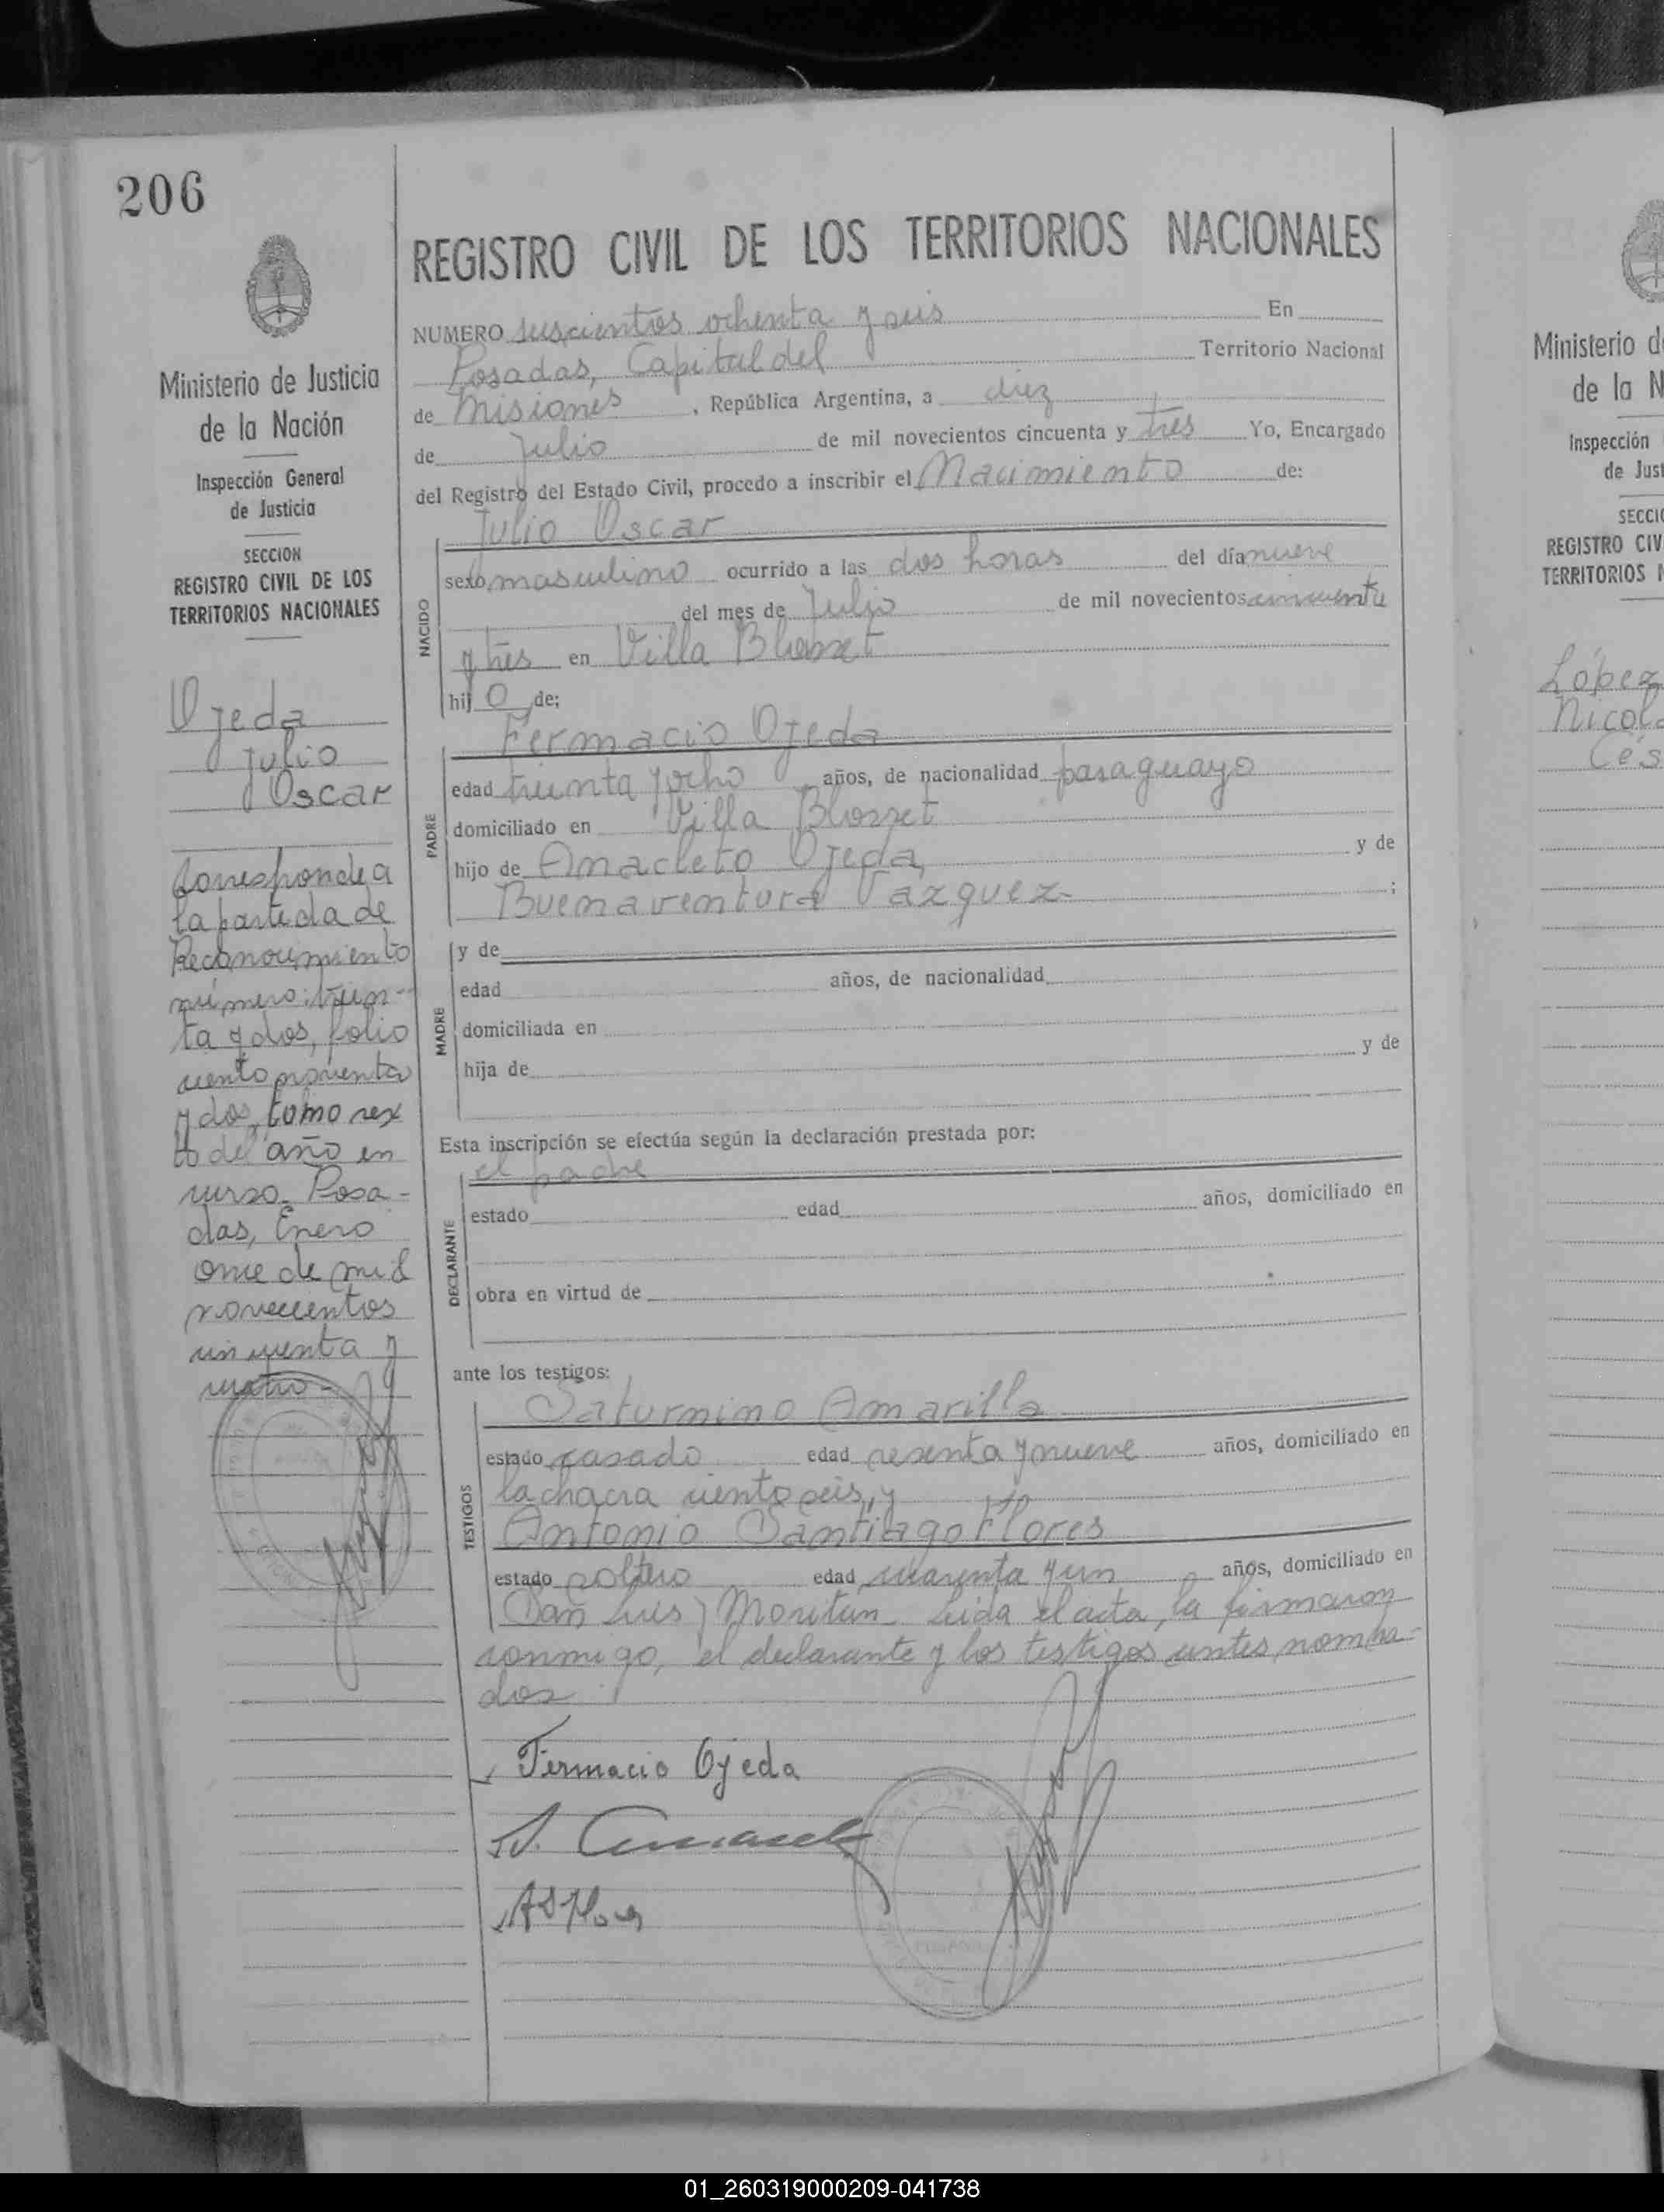 206
Ministerio de Justicia
de la Nación
Inspección General
de Justicia
SECCION
REGISTRO CIVIL DE LOS
TERRITORIOS NACIONALES
Ojeda
Julio
Oscar
Corresponde a
la partida de
Reconocimiento
número: trein-
ta y dos, folio
ciento noventa
y dos, tomo sex
to del año en
curso. Posa-
das, Enero
once de mil
novecientos
cincuenta y
cuatro.-
REGISTRO CIVIL DE LOS TERRITORIOS NACIONALES
NUMERO seiscientos ochenta y seis En
Posadas, Capital del Territorio Nacional
de Misiones, República Argentina, a diez
de Julio de mil novecientos cincuenta y tres Yo, Encargado
del Registro del Estado Civil, procedo a inscribir el Nacimiento de:
Julio Oscar
NACIDO
sexo masculino ocurrido a las dos horas del día nueve
del mes de Julio de mil novecientos cincuenta
y tres en Villa Blosset
hij o de:
Fermacio Ojeda
PADRE
edad treinta y ocho años, de nacionalidad paraguayo
domiciliado en Villa Blosset
hijo de Anacleto Ojeda, y de
Buenaventura Vazquez- ;
MADRE
y de
edad años, de nacionalidad
domiciliada en
hija de y de
Esta inscripción se efectúa según la declaración prestada por:
el padre
DECLARANTE
estado edad años, domiciliado en
obra en virtud de
ante los testigos:
Saturnino Amarilla
TESTIGOS
estado casado edad sesenta y nueve años, domiciliado en
la chacra ciento seis, y
Antonio Santiago Flores
estado soltero edad cuarenta y un años, domiciliado en
San Luis y Moritan. Leida el acta, la firmaron
conmigo, el declarante y los testigos antes nombra-
dos.
Fermacio Ojeda
ASFlores
Ministerio d
de la N
Inspección
de Just
SECCIO
REGISTRO CIV
TERRITORIOS N
López
Nicol
Cés
01_260319000209-041738